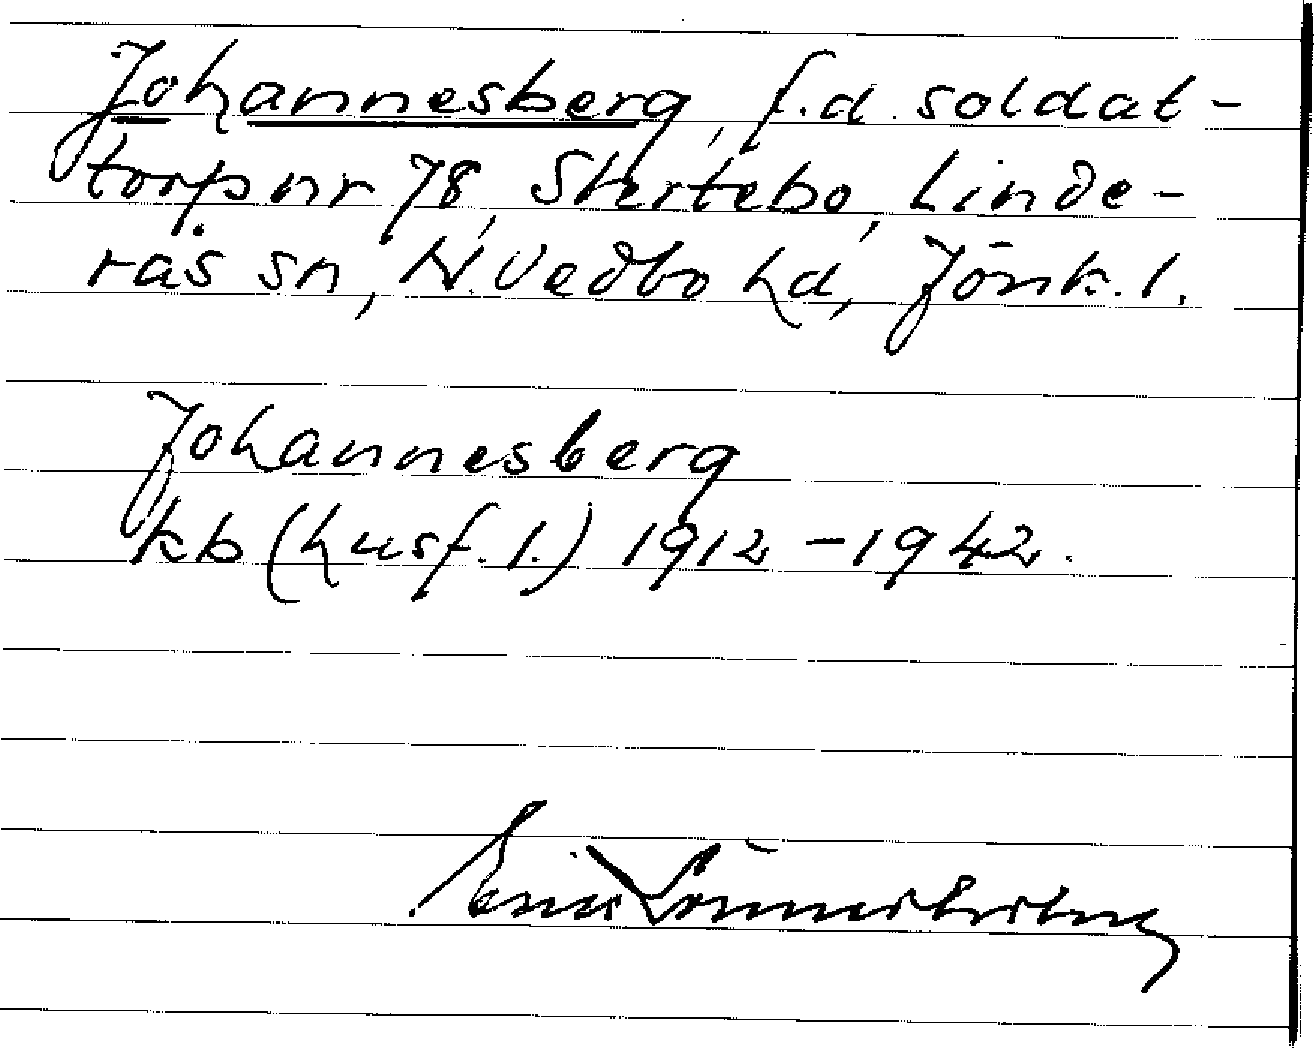 Johannesberg, f.d. soldat-
torp nr 78, Stertebo, Linde-
rås sn, N. Vedbo hd, Jönk. l.
Johannesberg
kb (husf. l.) 1912 - 1942.